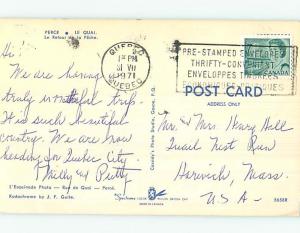 PERCE • LE QUAI.
Le Retour de la Pêche.
QUEBEC
1 PM
31 VII
1971
QUEBEC
PRE-STAMPED ENVELOPES
THRIFTY-CONVENIENT
ENVELOPPES TIMBRÉES
POST CARD
ADDRESS ONLY
Hi!
We are having
truly wonderful trip.
It is such beautiful
country. We are now
heading for Quebec City.
Milly and Putty
Mr. & Mrs. Henry Hall
Quail Nest Run
Harwich, Mass.
USA-
L'Esquinade Photo — Rue du Quai — Percé.
Kodachrome by J. F. Guite.
56508